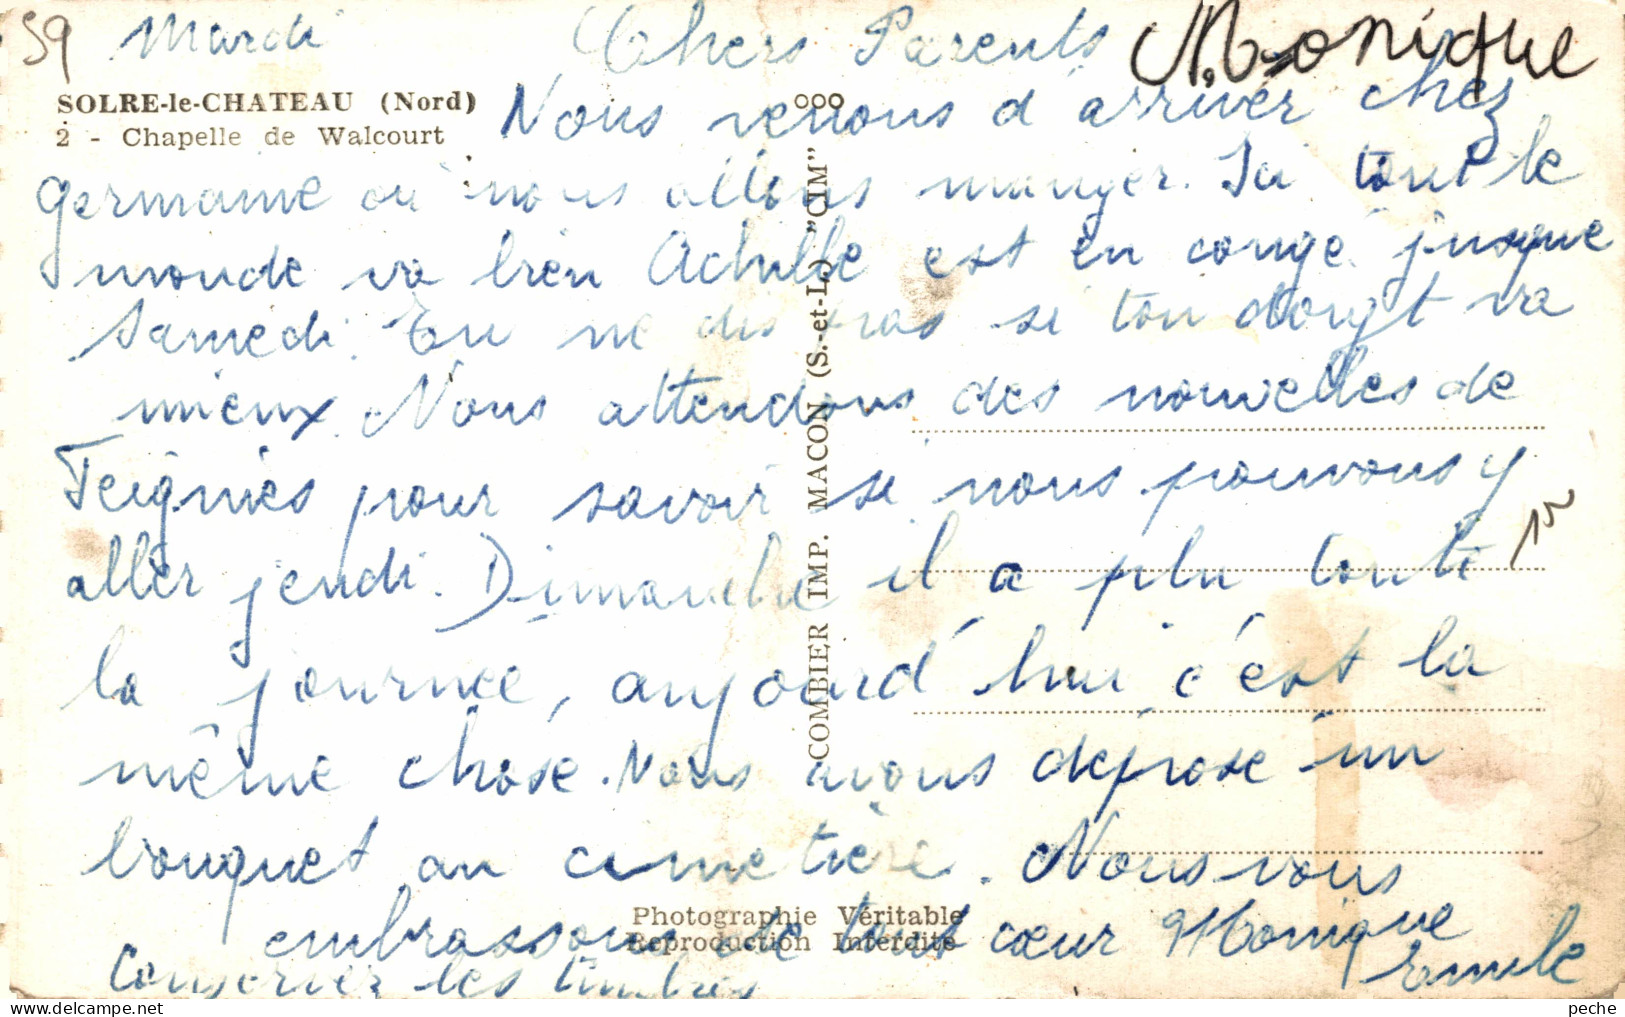 59 Mardi Chers Parents Monique
SOLRE-le-CHATEAU (Nord)
2 - Chapelle de Walcourt
Nous venons d arriver chez
germaine ou nous allons manger. Ici tout le
monde va bien Achille est en congé jusque
Samedi. Tu ne dis pas si ton doigt va
mieux. Nous attendons des nouvelles de
Feignies pour savoir si nous pouvons y
aller jeudi. Dimanche il a plu toute
la journée, aujourd'hui c'est la
même chose. Nous avons déposé un
bouquet au cimetière. Nous vous
embrassons de tout cœur Monique
Emile
Conservez les timbres
COMBIER IMP. MACON (S.-et-L.) "CIM"
Photographie Véritable
Reproduction Interdite
peche